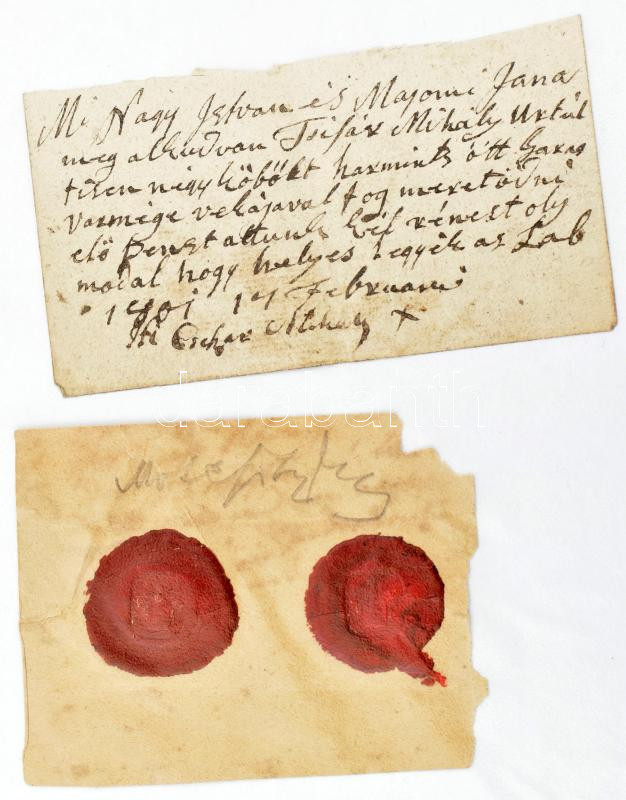 Mi Nagy Istvan és Majomi Jana
meg alkudvan Tsifár Mihály Urtúl
tisen négy köbökt harmintz ött Garas
varmége vekájaval fog meretödni
elö Penzt attunk két rénest oly
modal hogy helyes legyék az Lab
1801 14 Februari
Mihaly x
darabanth